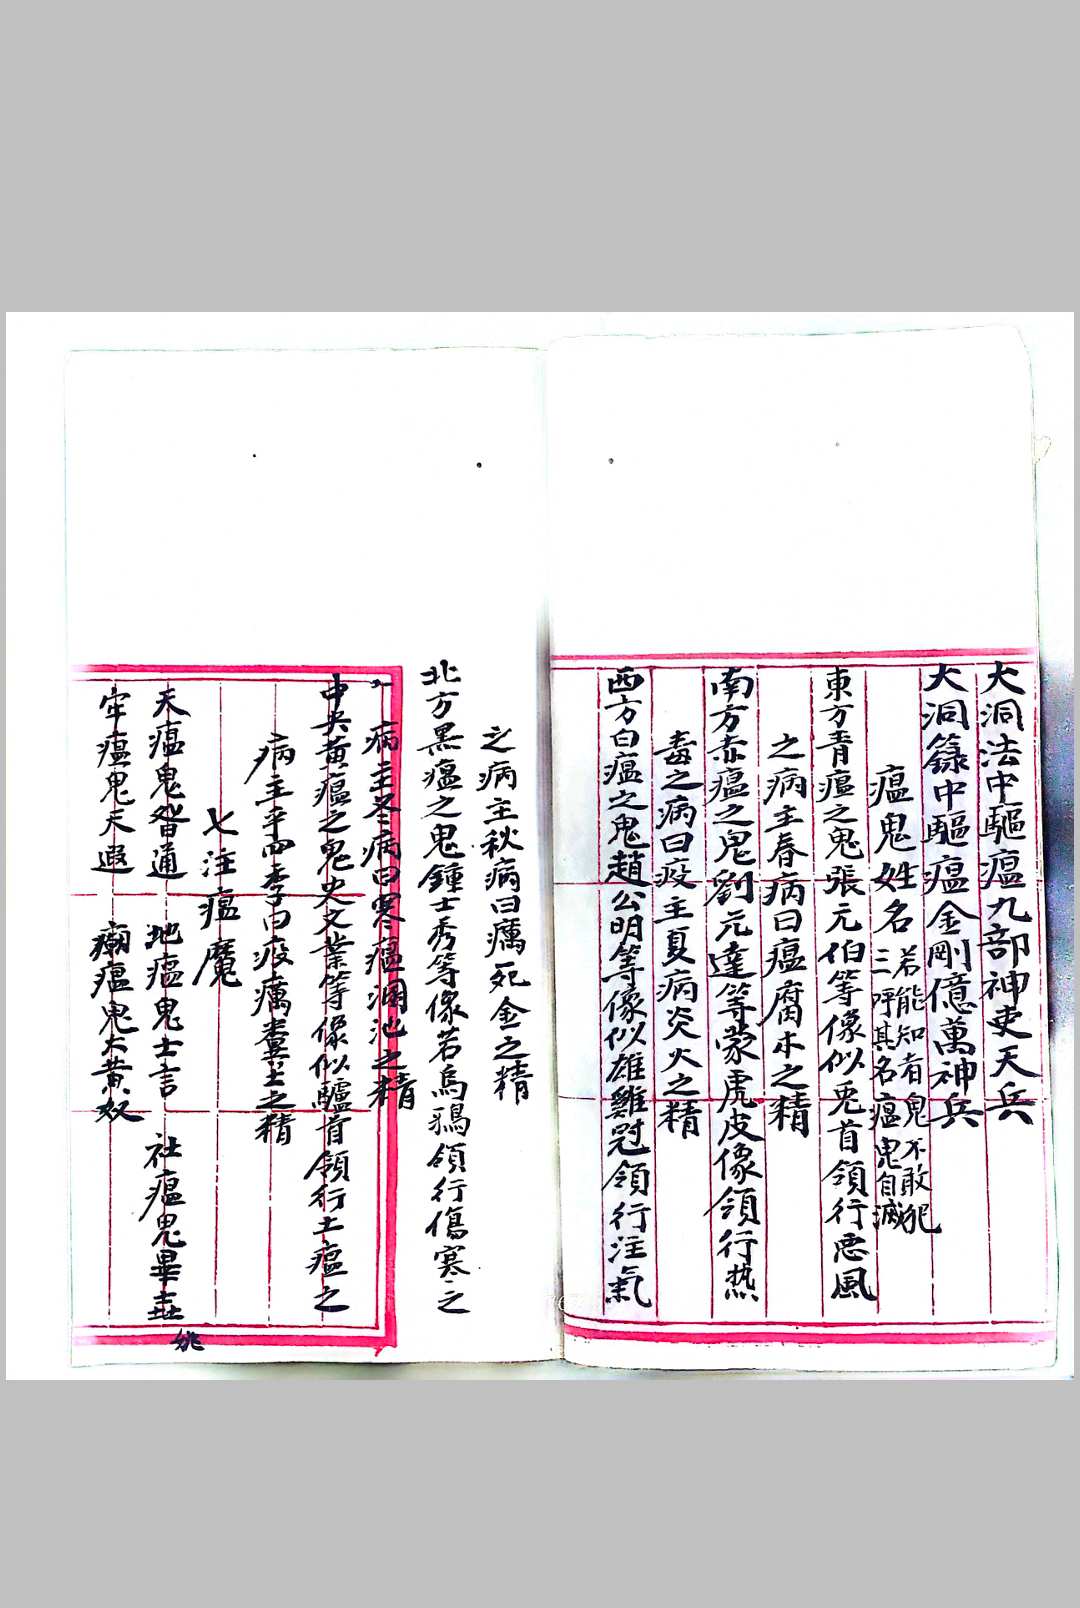 大洞法中驅瘟九部神吏天兵
大洞籙中驅瘟金剛億萬神兵
瘟鬼姓名 若能知者鬼不敢犯
三呼其名瘟鬼自滅
東方青瘟之鬼張元伯等像似兎首領行惡風
之病主春病曰瘟腐木之精
南方赤瘟之鬼劉元達等蒙虎皮像領行热
毒之病曰疫主夏病炎火之精
西方白瘟之鬼趙公明等像似雄雞冠領行注氣
之病主秋病曰癘死金之精
北方黑瘟之鬼鍾士秀等像若烏鴉領行傷寒之
病主冬病曰寒瘟涸池之精
中央黄瘟之鬼史文業等像似驢首領行土瘟之
病主平四季曰疫癘糞土之精
七注瘟魔
天瘟鬼咎通 地瘟鬼士言 社瘟鬼畢
牢瘟鬼天遐 廟瘟鬼大黄奴
姚